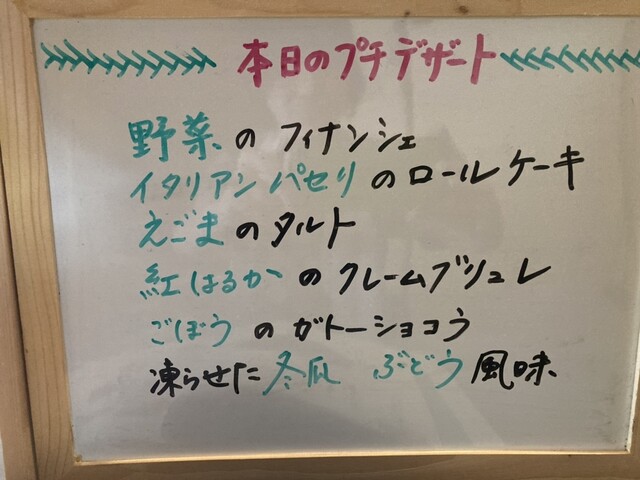 本日のプチデザート
野菜のフィナンシェ
イタリアンパセリのロールケーキ
えごまのタルト
紅はるかのクレームブリュレ
ごぼうのガトーショコラ
凍らせた冬瓜 ぶどう風味